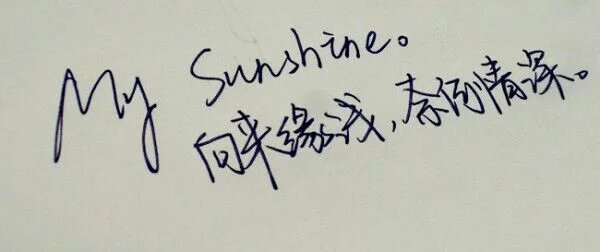 My Sunshine。
向来缘浅,奈何情深。